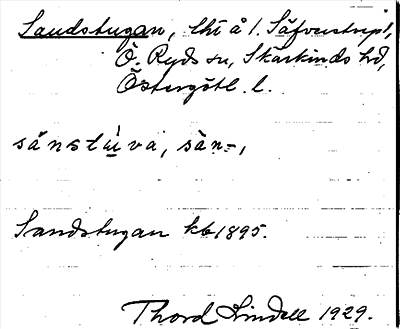 Sandstugan, lht å 1 Säfverstrip 1,
Ö. Ryds sn, Skärkinds hd,
Östergötl. l.
sánstù̱va, sàn-,
Sandstugan kb 1895.
Thord Lindell 1929.